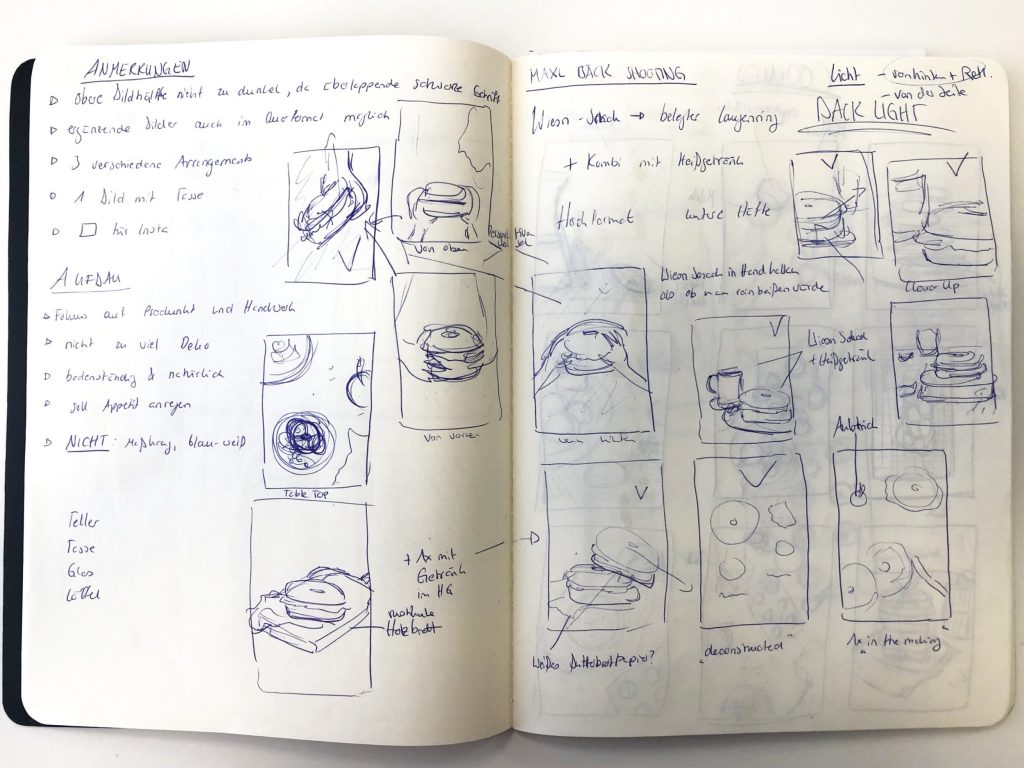 ANMERKUNGEN
▷ obere Bildhälfte nicht zu dunkel, da überlappende schwarze Schrift
▷ ergänzende Bilder auch im Querformat möglich
▷ 3 verschiedene Arrangements
▷ 1 Bild mit Tasse
▷ □ für Insta
Von oben
AUFBAU
▷ Fokus auf Produkt und Handwerk
▷ nicht zu viel Deko
▷ bodenständig & natürlich
▷ soll Appetit anregen
▷ NICHT: Maßkrug, blau-weiß
Von vorner
Table Top
Teller
Tasse
Glas
Löffel
+ 1x mit
Getränk
im HG
Holzbrett
MAXL BÄCK SHOOTING
Licht - von hinten + Refl.
- von der Seite
BACK LIGHT
Wiesn-Semch → belegter Laugenring
+ Kombi mit Heißgetränk
Hochformat untere Hälfte
Closer Up
Wiesn Semch in Hand halten
als ob man reinbeißen würde
Wiesn Semch
+ Heißgetränk
von hinten
Aufstrich
weißes Butterbrotpapier?
"deconstructed"
"1x in the making"